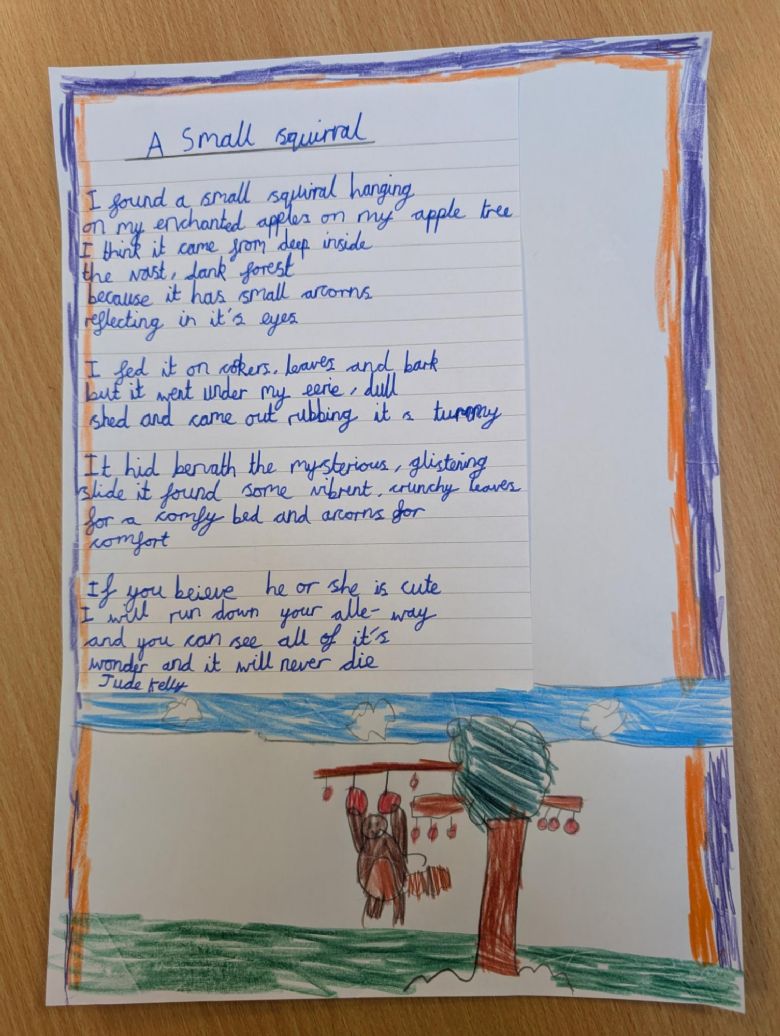 A Small squirral
I found a small squiral hanging
on my enchanted apples on my apple tree
I think it came from deep inside
the vast, dank forest
because it has small arcorns
reflecting in it's eyes
I fed it on cokers, leaves and bark
but it went under my eerie, dull
shed and came out rubbing it s tummy
It hid benvath the mysterious, glistering
slide it found some vibrent, crunchy leaves
for a comfy bed and arcorns for
comfort
If you beieve he or she is cute
I will run down your alle-way
and you can see all of it's
wonder and it will never die
Jude Kelly